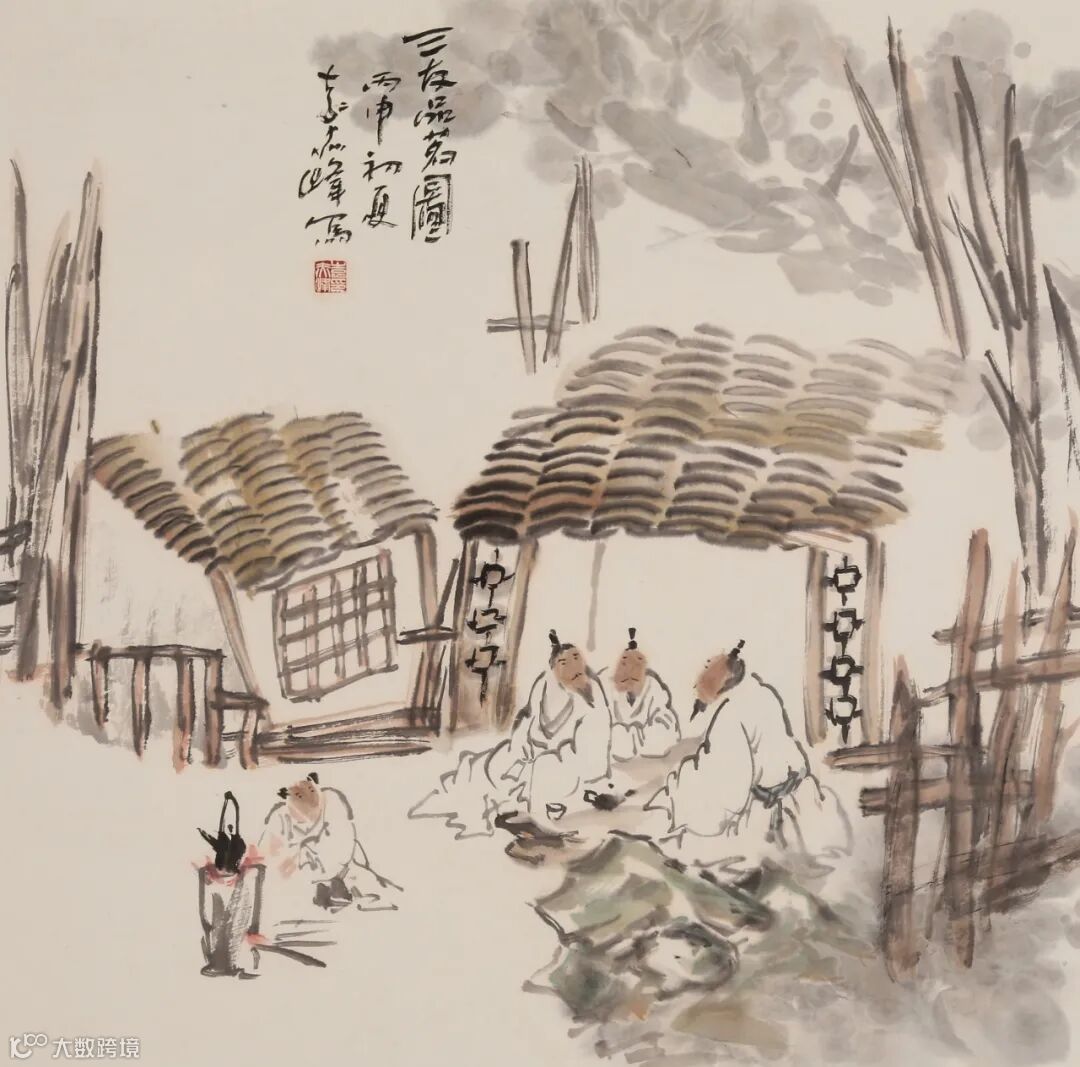 三友品茗圖
丙申初夏
峰寫
大数跨境